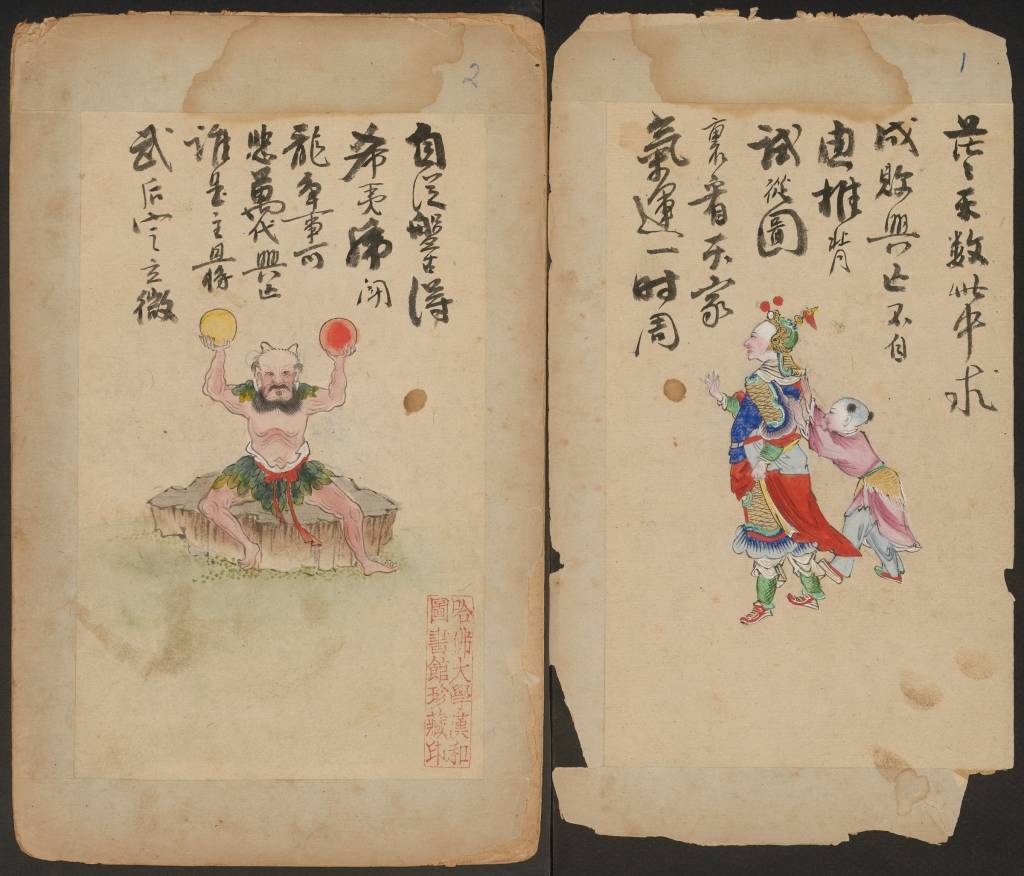 1
茫〻天数此中求
成敗興亡不自
由推背
試從圖
裏看天家
氣運一时周
2
自從盤古得
希夷虎闘
龍争事可
悲萬代興亡
誰是主且將
武后定立微
哈佛大學漢和
圖書館珍藏印